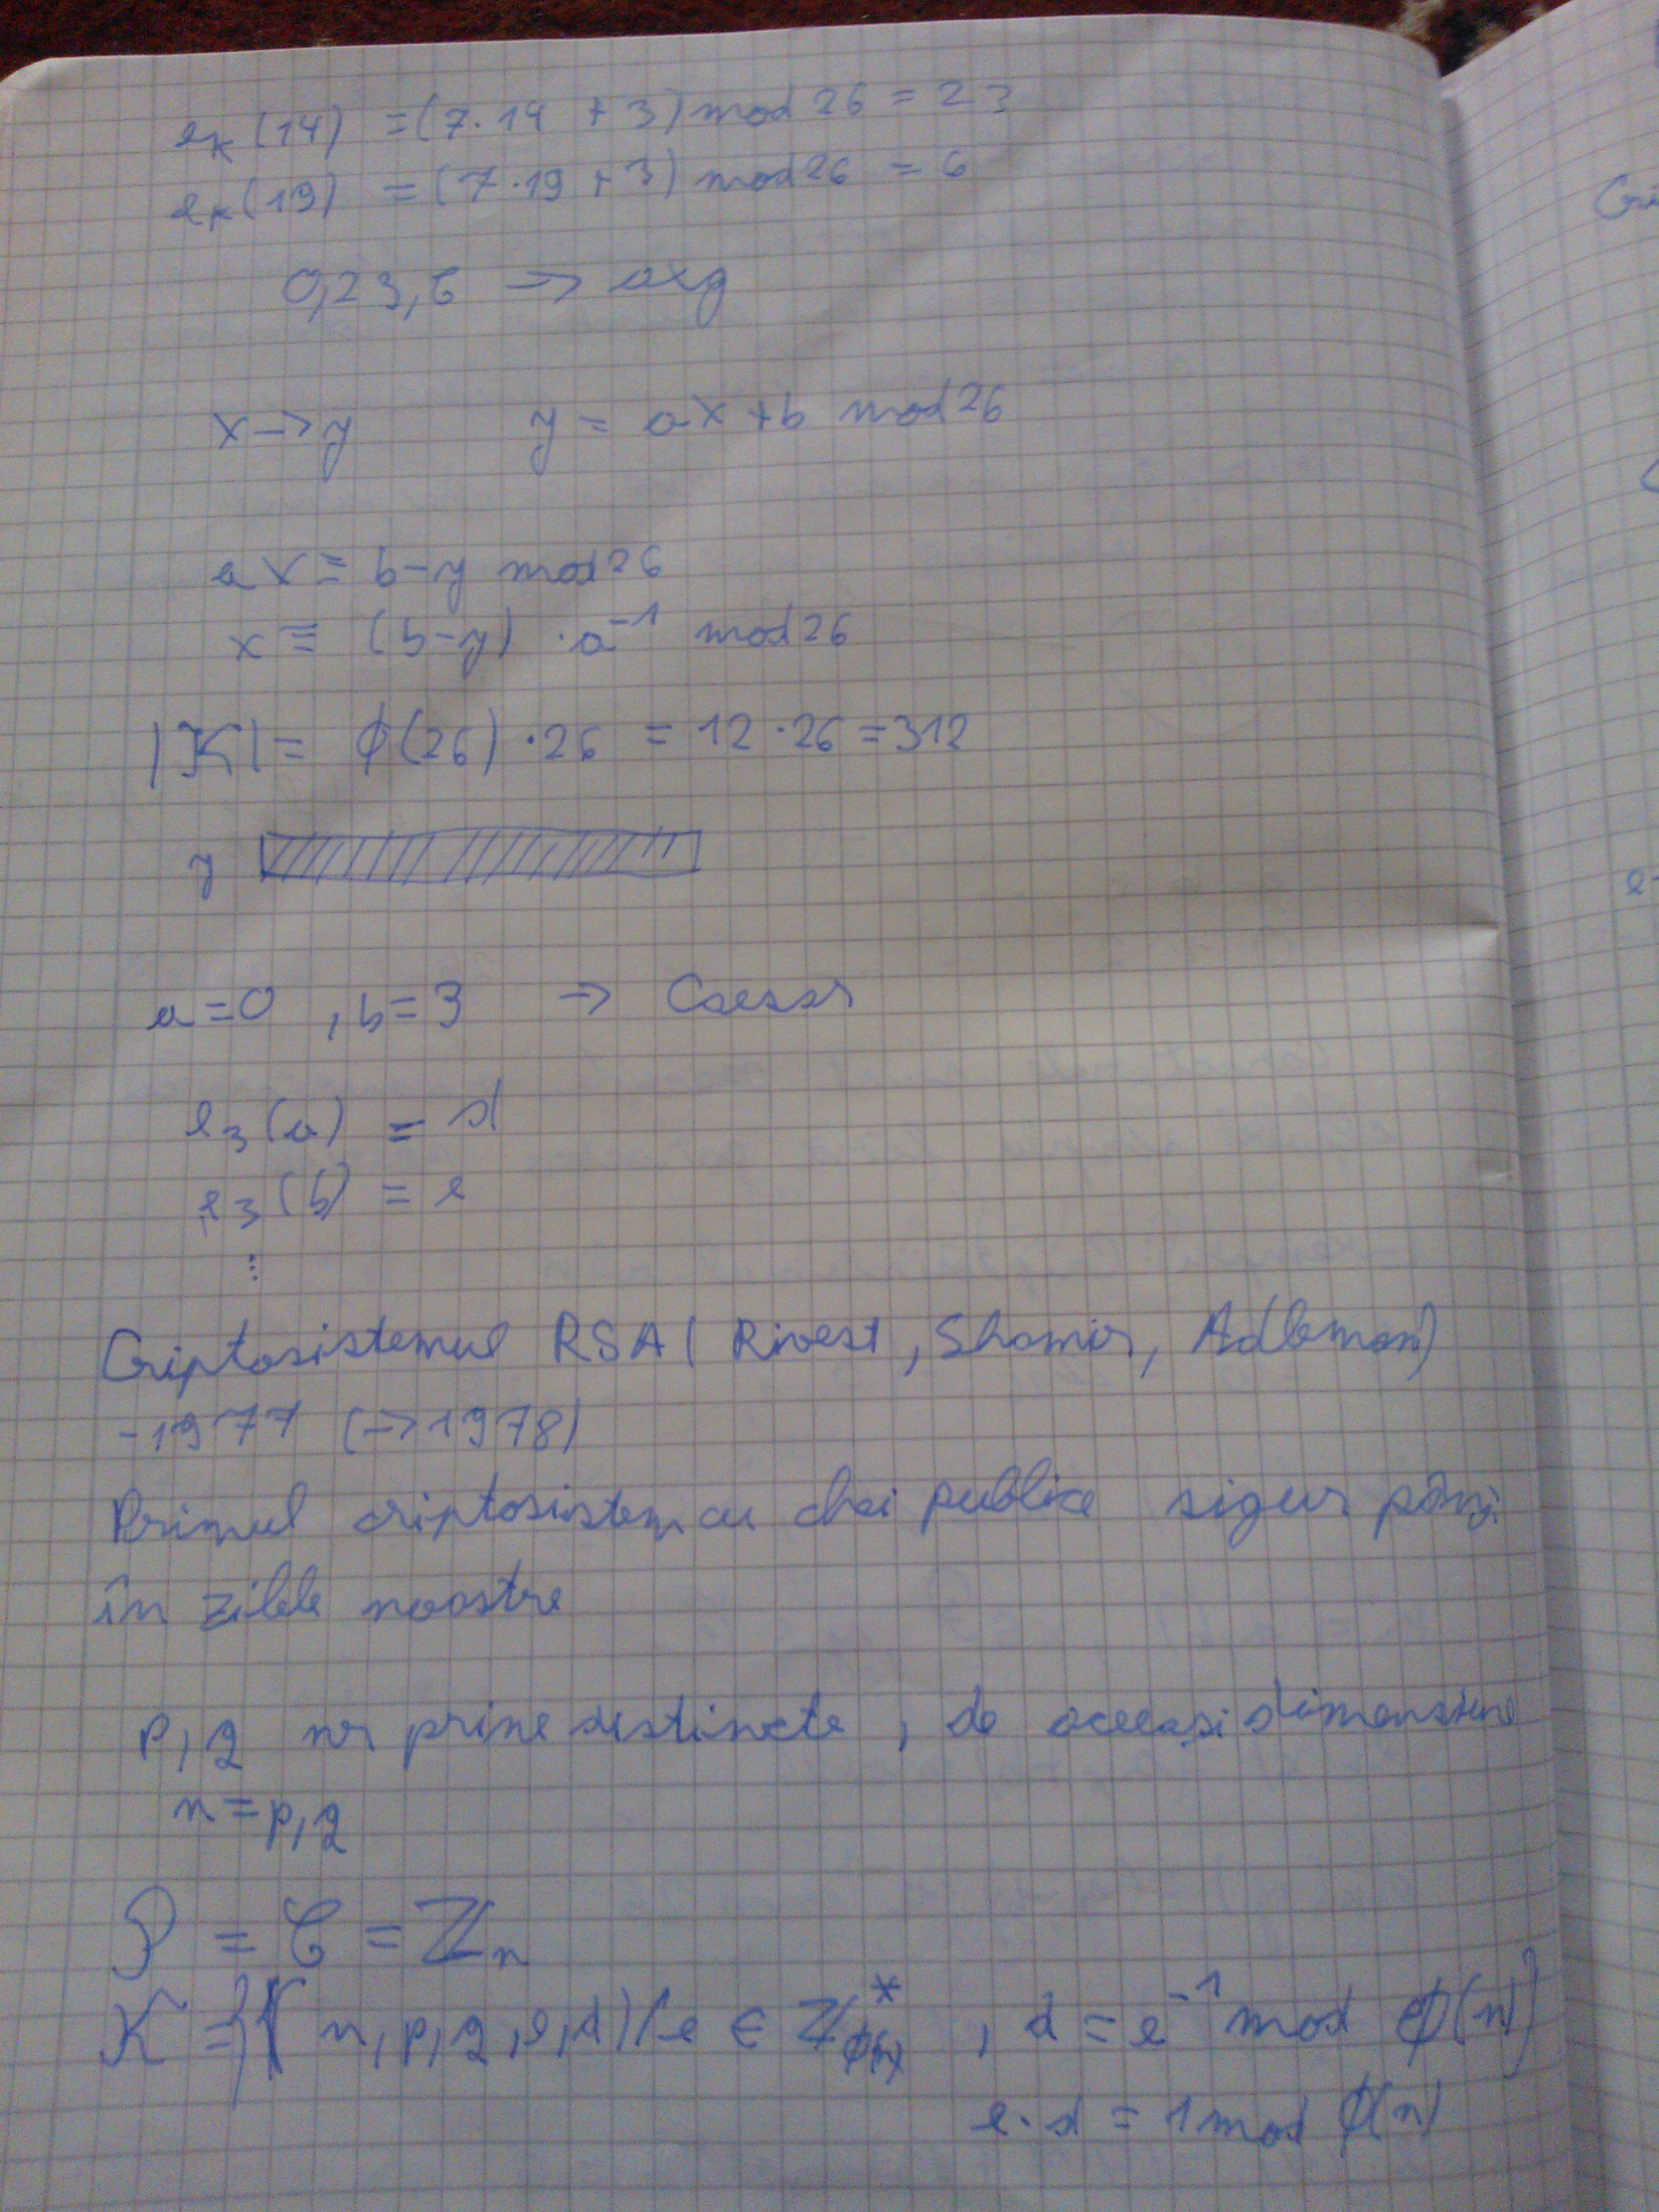 e_K(14) = (7·14 + 3) mod 26 = 23
e_K(19) = (7·19 + 3) mod 26 = 6
0,23,6 → axg
x → y y = ax + b mod 26
ax ≡ b-y mod 26
x ≡ (b-y) · a⁻¹ mod 26
|K| = ϕ(26) · 26 = 12 · 26 = 312
y
a=0 , b=3 → Caesar
e₃(a) = d
e₃(b) = e
⋮
Criptosistemul RSA ( Rivest, Shamir, Adleman)
-1977 (→1978)
Primul criptosistem cu chei publice sigur până
în zilele noastre
p,q nr prime distincte, de aceeași dimensiune
n=p,q
P = C = ℤₙ
K = {( n,p,q,e,d) / e ∈ ℤ*_ϕ(n) , d = e⁻¹ mod ϕ(n)}
e·d = 1 mod ϕ(n)